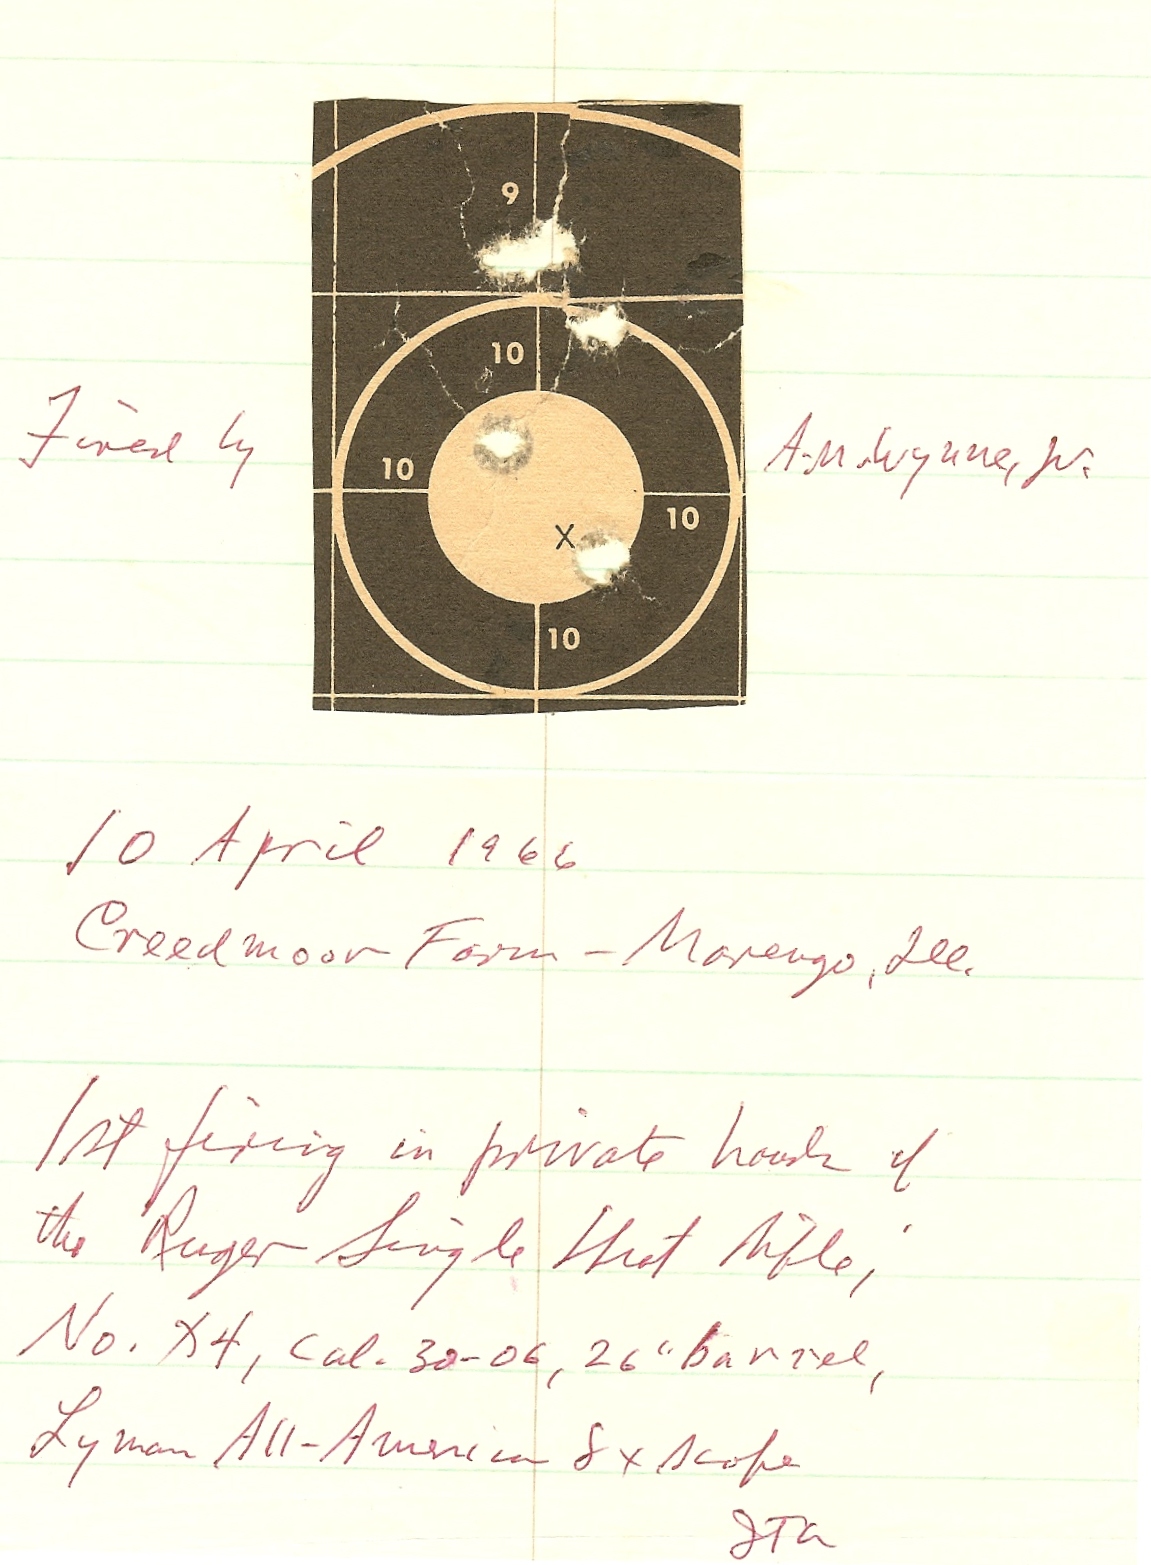 9
10
10
10
X
10
Fired by A.M. Wynne, Jr.
10 April 1966
Creedmoor Farm - Marengo, Ill.
1st firing in private hands of
the Ruger Single Shot Rifle,
No. X4, Cal. 30-06, 26" barrel,
Lyman All-American 8x scope
JTA